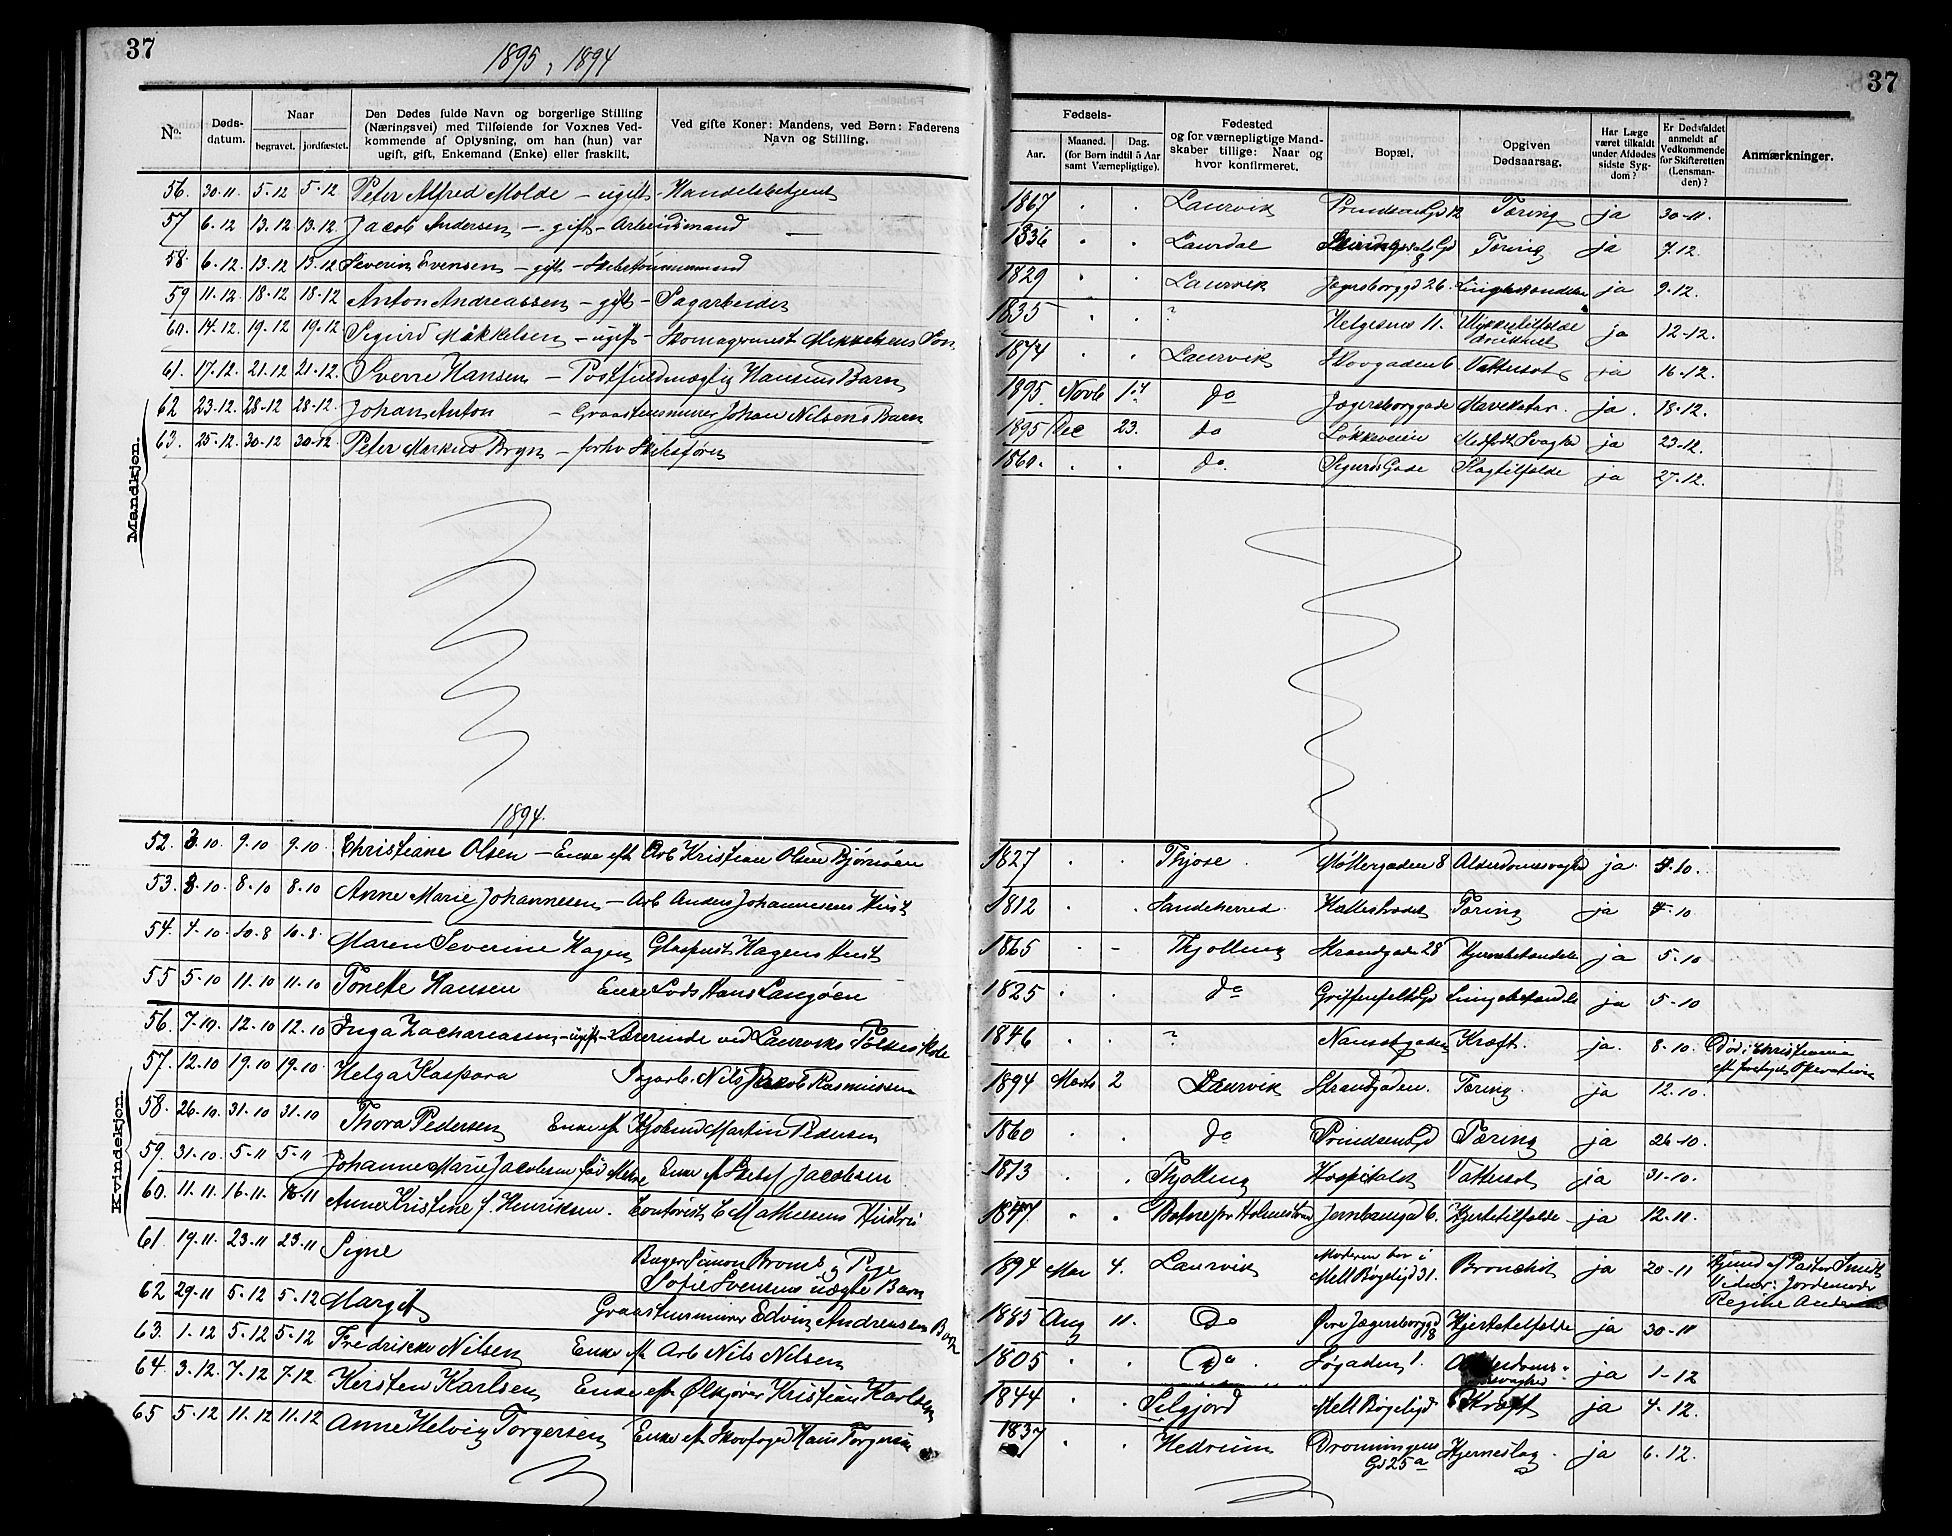 37
1895, 1894
No.
Døds-
datum.
Naar
begravet. jordfæstet.
Den Dødes fulde Navn og borgerlige Stilling
(Næringsvei) med Tilføiende for Voxnes Ved-
kommende af Oplysning, om han (hun) var
ugift, gift, Enkemand (Enke) eller fraskilt.
Ved gifte Koner: Mandens, ved Børn: Faderens
Navn og Stilling.
Mandkjøn.
56. 30-11. 5-12 5-12 Peter Alfred Molde - ugift - Handelsbetjent
57 6-12 13-12 13-12. Jacob Andersen - gift - Arbeidsmand
58. 6-12. 13-12 13-12 Severin Evensen - gift -
59 11-12. 18-12 18-12 Anton Andreassen - gift - Sagarbeider
60. 14-12. 19-12 19-12 Sigurd - ugift - Mikkelsens Søn
61. 17-12. 21-12 21-12. Sverre Hansen - Postfuldmægtig Hansens Barn
62 23-12. 28-12 28-12. Johan Anton - Graastensmurer Johan Nilsens Barn
63. 25-12. 30-12 30-12. Peter Markus Bryn - forhv Skibsfører
1894.
Kvindekjøn.
52. 3-10. 9-10 9-10 Christiane Olsen - Enke eft Arb Kristian Olsen Bjørnøen
53. 3-10. 8-10 8-10 Anne Marie Johannesen - Arb Anders Johannesens Hust
54. 4-10 10-8 10-8. Maren Severine Hagen Glaspust Hagens Hust
55 5-10 11-10 11-10 Tonette Hansen Enke Lods Hans Langøen
56. 7-10. 12-10 12-10 Inga Zachariassen - ugift - Lærerinde ved Laurviks Folkeskole
57. 12-10 19-10 19-10. Helga Kaspara Sagarb. Nils Jakob Rasmussen
58. 26-10. 31-10 31-10 Thora Pedersen Enke eft Martin Pedersen
59. 31-10. 5-11 5-11 Johanne Marie Jacobsen Enke eft Jacobsen
60. 11-11. 16-11. 16-11 Anne Kristine f. Henriksen. Contorist C Mathiesens Hustru
61. 19-11. 23-11 23-11 Signe Bager Simon og Pige
Sofie Svensens uægte Barn
62 29-11 5-12 5-12 Margit Graastensmurer Edvin Andreasens Barn
63. 1-12 5-12 5-12 Fredrikke Nilsen Enke eft Arb Nils Nilsen
64. 3-12. 7-12 7-12 Kirsten Karlsen Enke eft Ølkjører Kristian Karlsen
65 5-12 11-12 11-12 Anne Helvig Torgersen Enke eft Skovfoged Hans Torgersen
37
Fødsels-
Aar. Maaned. Dag.
(for Børn indtil 5 Aar
samt Værnepligtige).
Fødested
og for værnepligtige Mand-
skaber tillige: Naar og
hvor konfirmeret.
Bopæl.
Opgiven
Dødsaarsag.
Har Læge
været tilkaldt
under Afdødes
sidste Syg-
dom?
Er Dødsfaldet
anmeldt af
Vedkommende
for Skifteretten
(Lensman-
den)?
Anmærkninger.
1867 Laurvik Prindsens Gd 12 Tæring ja 30-11.
1836 Laurdal Tæring ja 7-12.
1829 Laurvik Jægersborggd 26. ja 9-12.
1835 ? Helgesens 11. Ulykkestilfælde
druknet ja 12-12.
1874 Laurvik Skovgaden 6. Vattersot ja 16-12.
1895. Novb 14 do Jægersborggade Mavekatar. ja. 18-12.
1895 Dec 23. do Løkkeveien Medfødt Svaghed ja 23-12.
1860. do. Sigurds Gade Slagtilfælde ja 27-12.
1827 Thjose. Møllergaden 8 Alderdomssvaghed ja 4-10.
1812 Sandeherred Tæring ja 4-10
1865 Thjølling Strandgade 28 Hjernebetændelse ja 5-10
1825 do Griffenfelds Gd Lungebetændelse ja 5-10
1846 ? Nansetgaden Kræft. ja. 8-10. Død i Christiania
eft foretagen Operation
1894 Marts 2 Laurvik Strandgaden. Tæring. ja 12-10.
1860 do Prindsens Gd Tæring ja 26-10.
1813 Thjølling Hospitalet Vattersot ja 31-10.
1847. Botne pr Holmestrand Jernbanegd 6. Hjertetilfælde ja 12-11.
1894 Mai 4. Laurvik Moderen bor i
Mell Bøgeligd 31. Bronchit ja 20-11
Regine
1885 Aug 11. Do Øvre Jægersborggd
8 Hjertetilfælde ja 30-11
1805 Do. Søgaden 1. ja 1-12
1844 Silgjord Mell Bøgeligd Kræft ja 4-12.
1837 Hedrum Dronningens
Gd 25a Hjerneslag. ja 6-12.